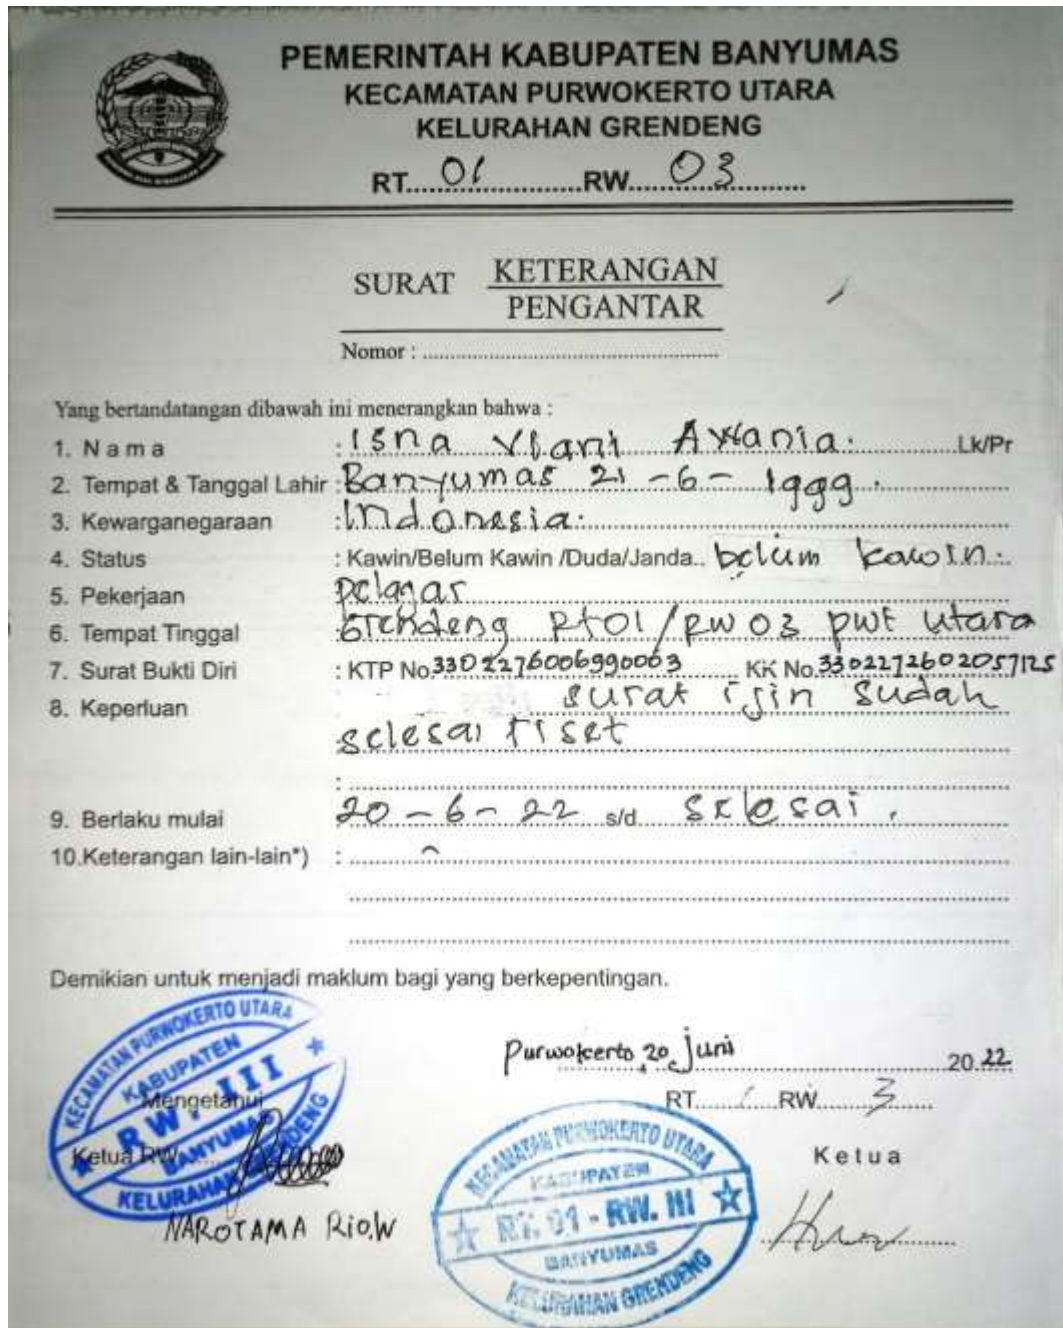 PEMERINTAH KABUPATEN BANYUMAS
KECAMATAN PURWOKERTO UTARA
KELURAHAN GRENDENG
RT....01..............RW......03..........
SURAT KETERANGAN
PENGANTAR
Nomor : ..............................
Yang bertandatangan dibawah ini menerangkan bahwa :
1. N a m a : Isna Awania. Lk/Pr
2. Tempat & Tanggal Lahir : Banyumas 21 - 6 - 1999.
3. Kewarganegaraan : Indonesia.
4. Status : Kawin/Belum Kawin /Duda/Janda.. belum kawin.
5. Pekerjaan pelajar
6. Tempat Tinggal : Grendeng Rt01/RW 03 pwt utara
7. Surat Bukti Diri : KTP No 3302276006990003 KK No. 3302272602057125
8. Keperluan surat ijin sudah
selesai riset
9. Berlaku mulai 20 - 6 - 22 s/d selesai.
10.Keterangan lain-lain*) : -
Demikian untuk menjadi maklum bagi yang berkepentingan.
Purwokerto 20 Juni 2022
RT. 1 RW. 3
Mengetahui
Ketua RW......
Ketua
NAROTAMA RIO.W
KECAMATAN PURWOKERTO UTARA
KABUPATEN
RW. III
BANYUMAS
KELURAHAN GRENDENG
KECAMATAN PURWOKERTO UTARA
KABUPATEN
RT. 01 - RW. III
BANYUMAS
KELURAHAN GRENDENG